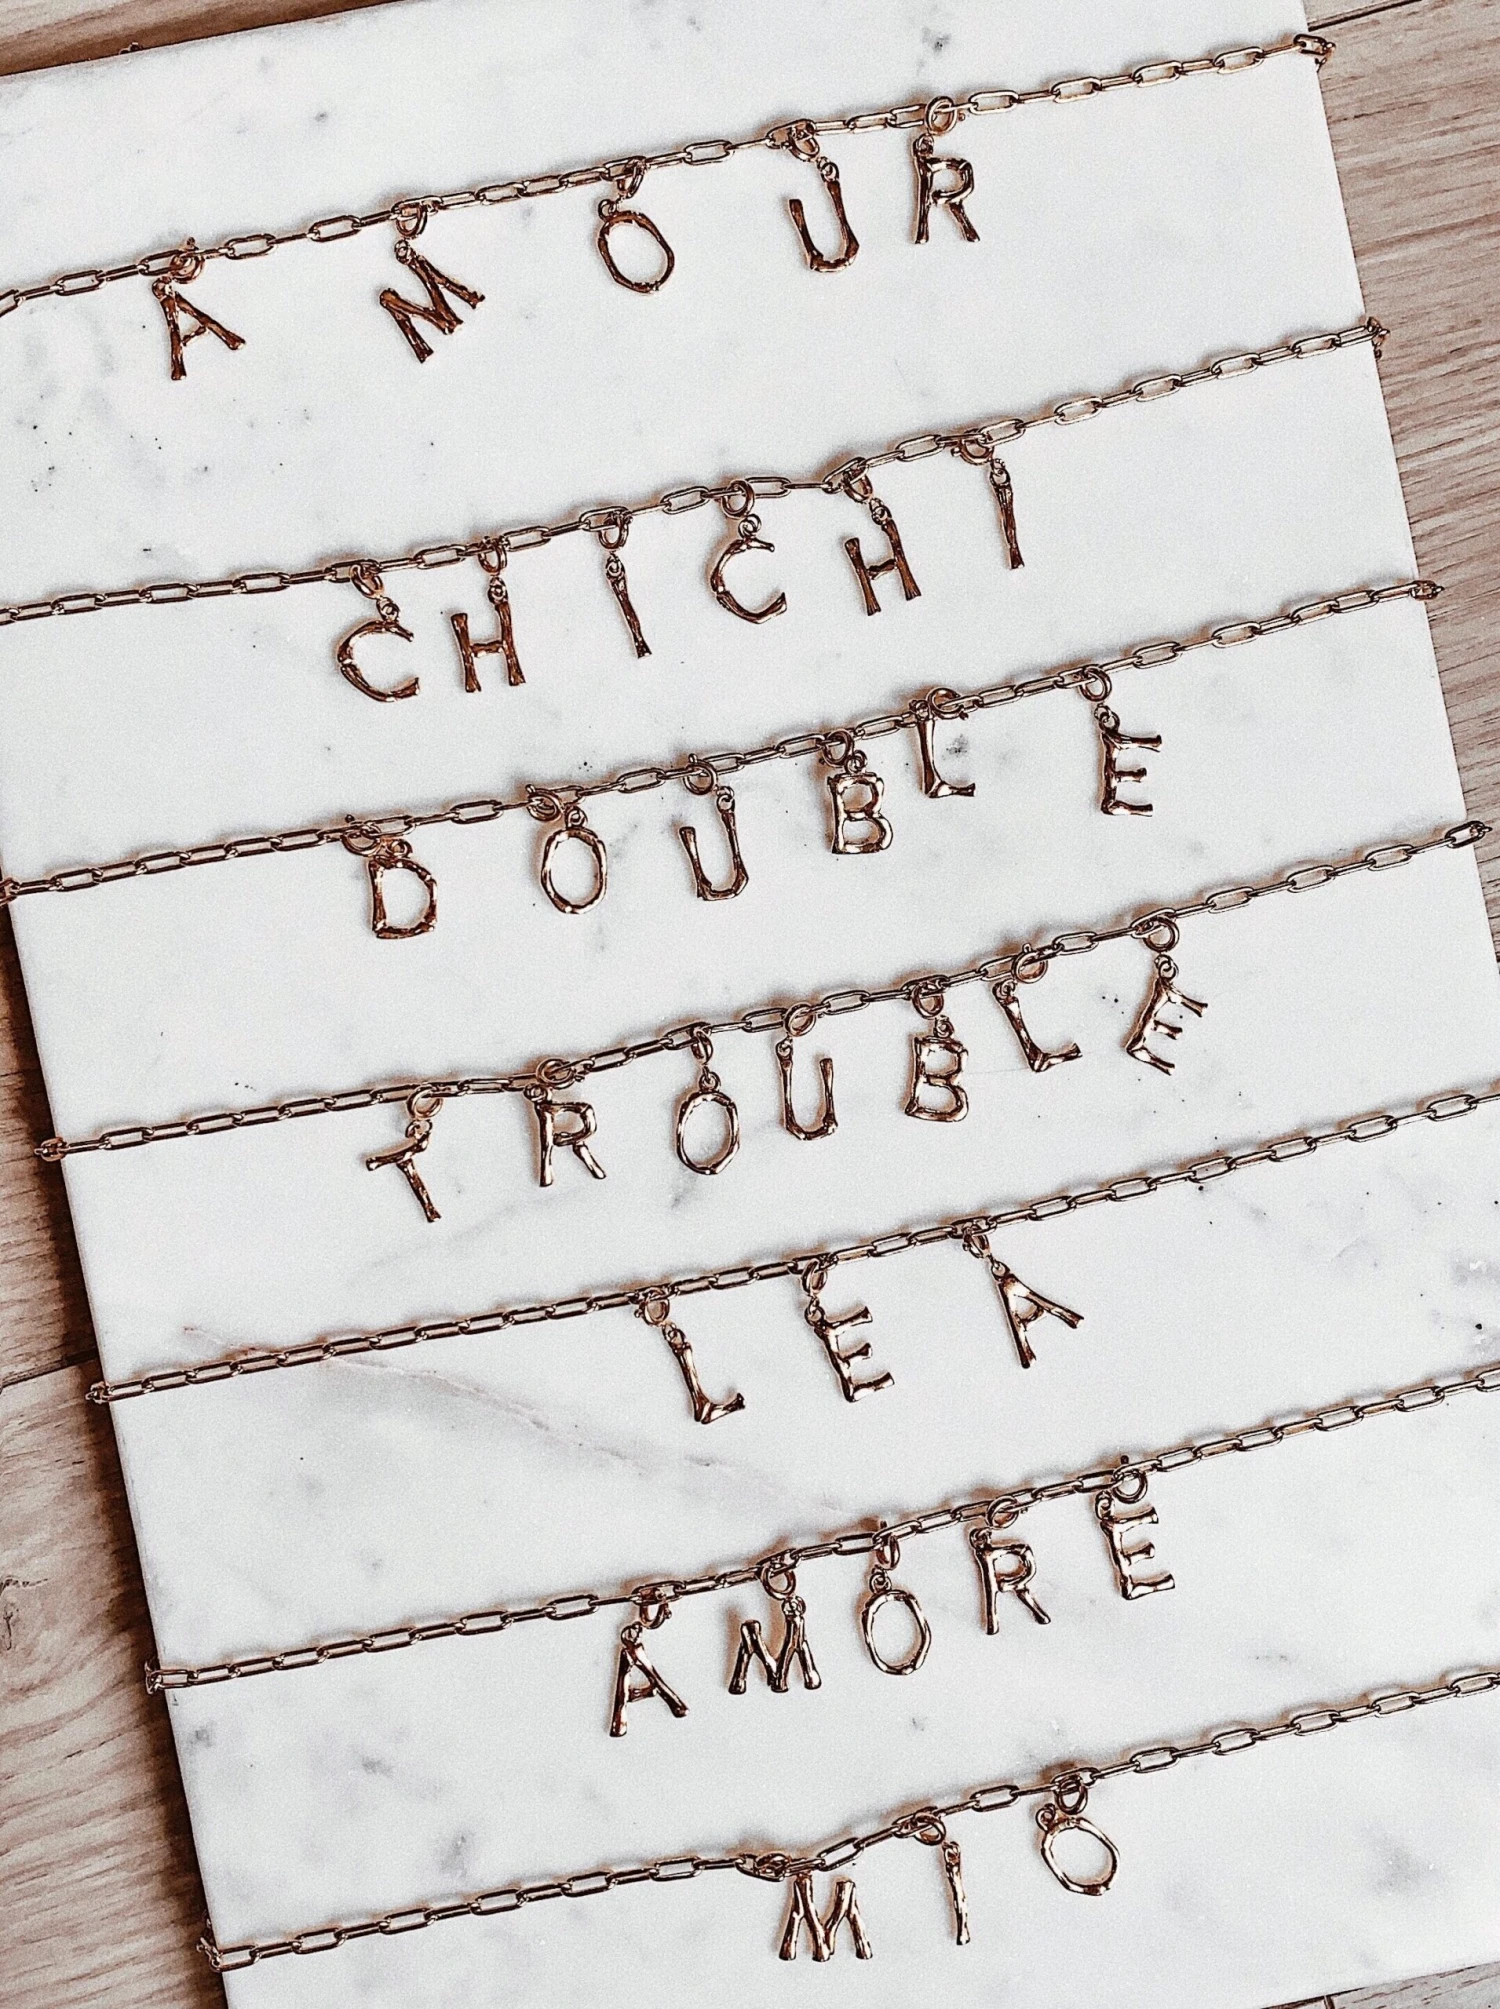 AMOUR
CHICHI
DOUBLE
TROUBLE
LEA
AMORE
MIO